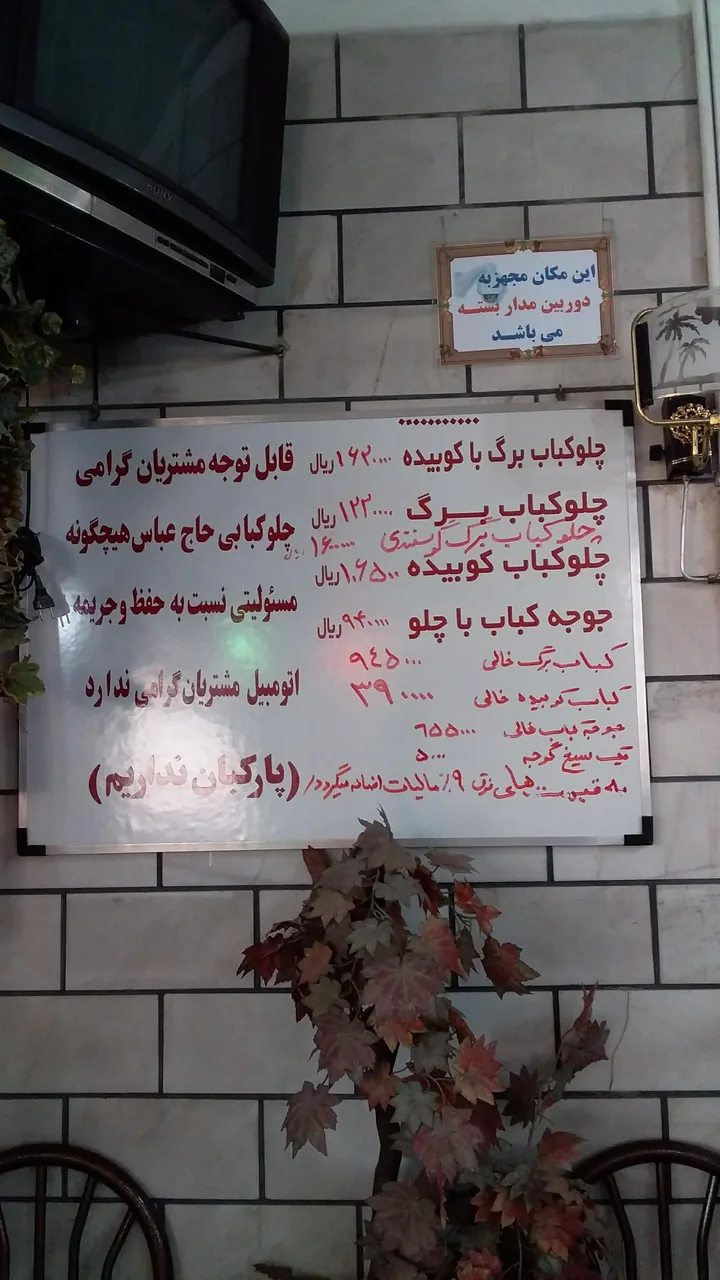 SONY
این مکان مجهز به
دوربین مدار بسته
می باشد
چلوکباب برگ با کوبیده ۱۶۲۰۰۰ ریال
چلوکباب بــرگ ۱۲۲۰۰۰ ریال
چلو کباب برگ گوسفندی ۱۶۰۰۰۰۰ ریال
چلوکباب کوبیده ۱۰۶۵۰۰ ریال
جوجه کباب با چلو ۹۴۰۰۰۰ ریال
کباب برگ خالی ۹۴۵۰۰۰
کباب کوبیده خالی ۳۹۰۰۰۰
جوجه کباب خالی ۶۵۵۰۰۰
یک سیخ گوجه ۵۰۰۰
به قیمت های فوق ۹٪ مالیات اضافه میگردد
قابل توجه مشتریان گرامی
چلوکبابی حاج عباس هیچگونه
مسئولیتی نسبت به حفظ و جریمه
اتومبیل مشتریان گرامی ندارد
(پارکبان نداریم)